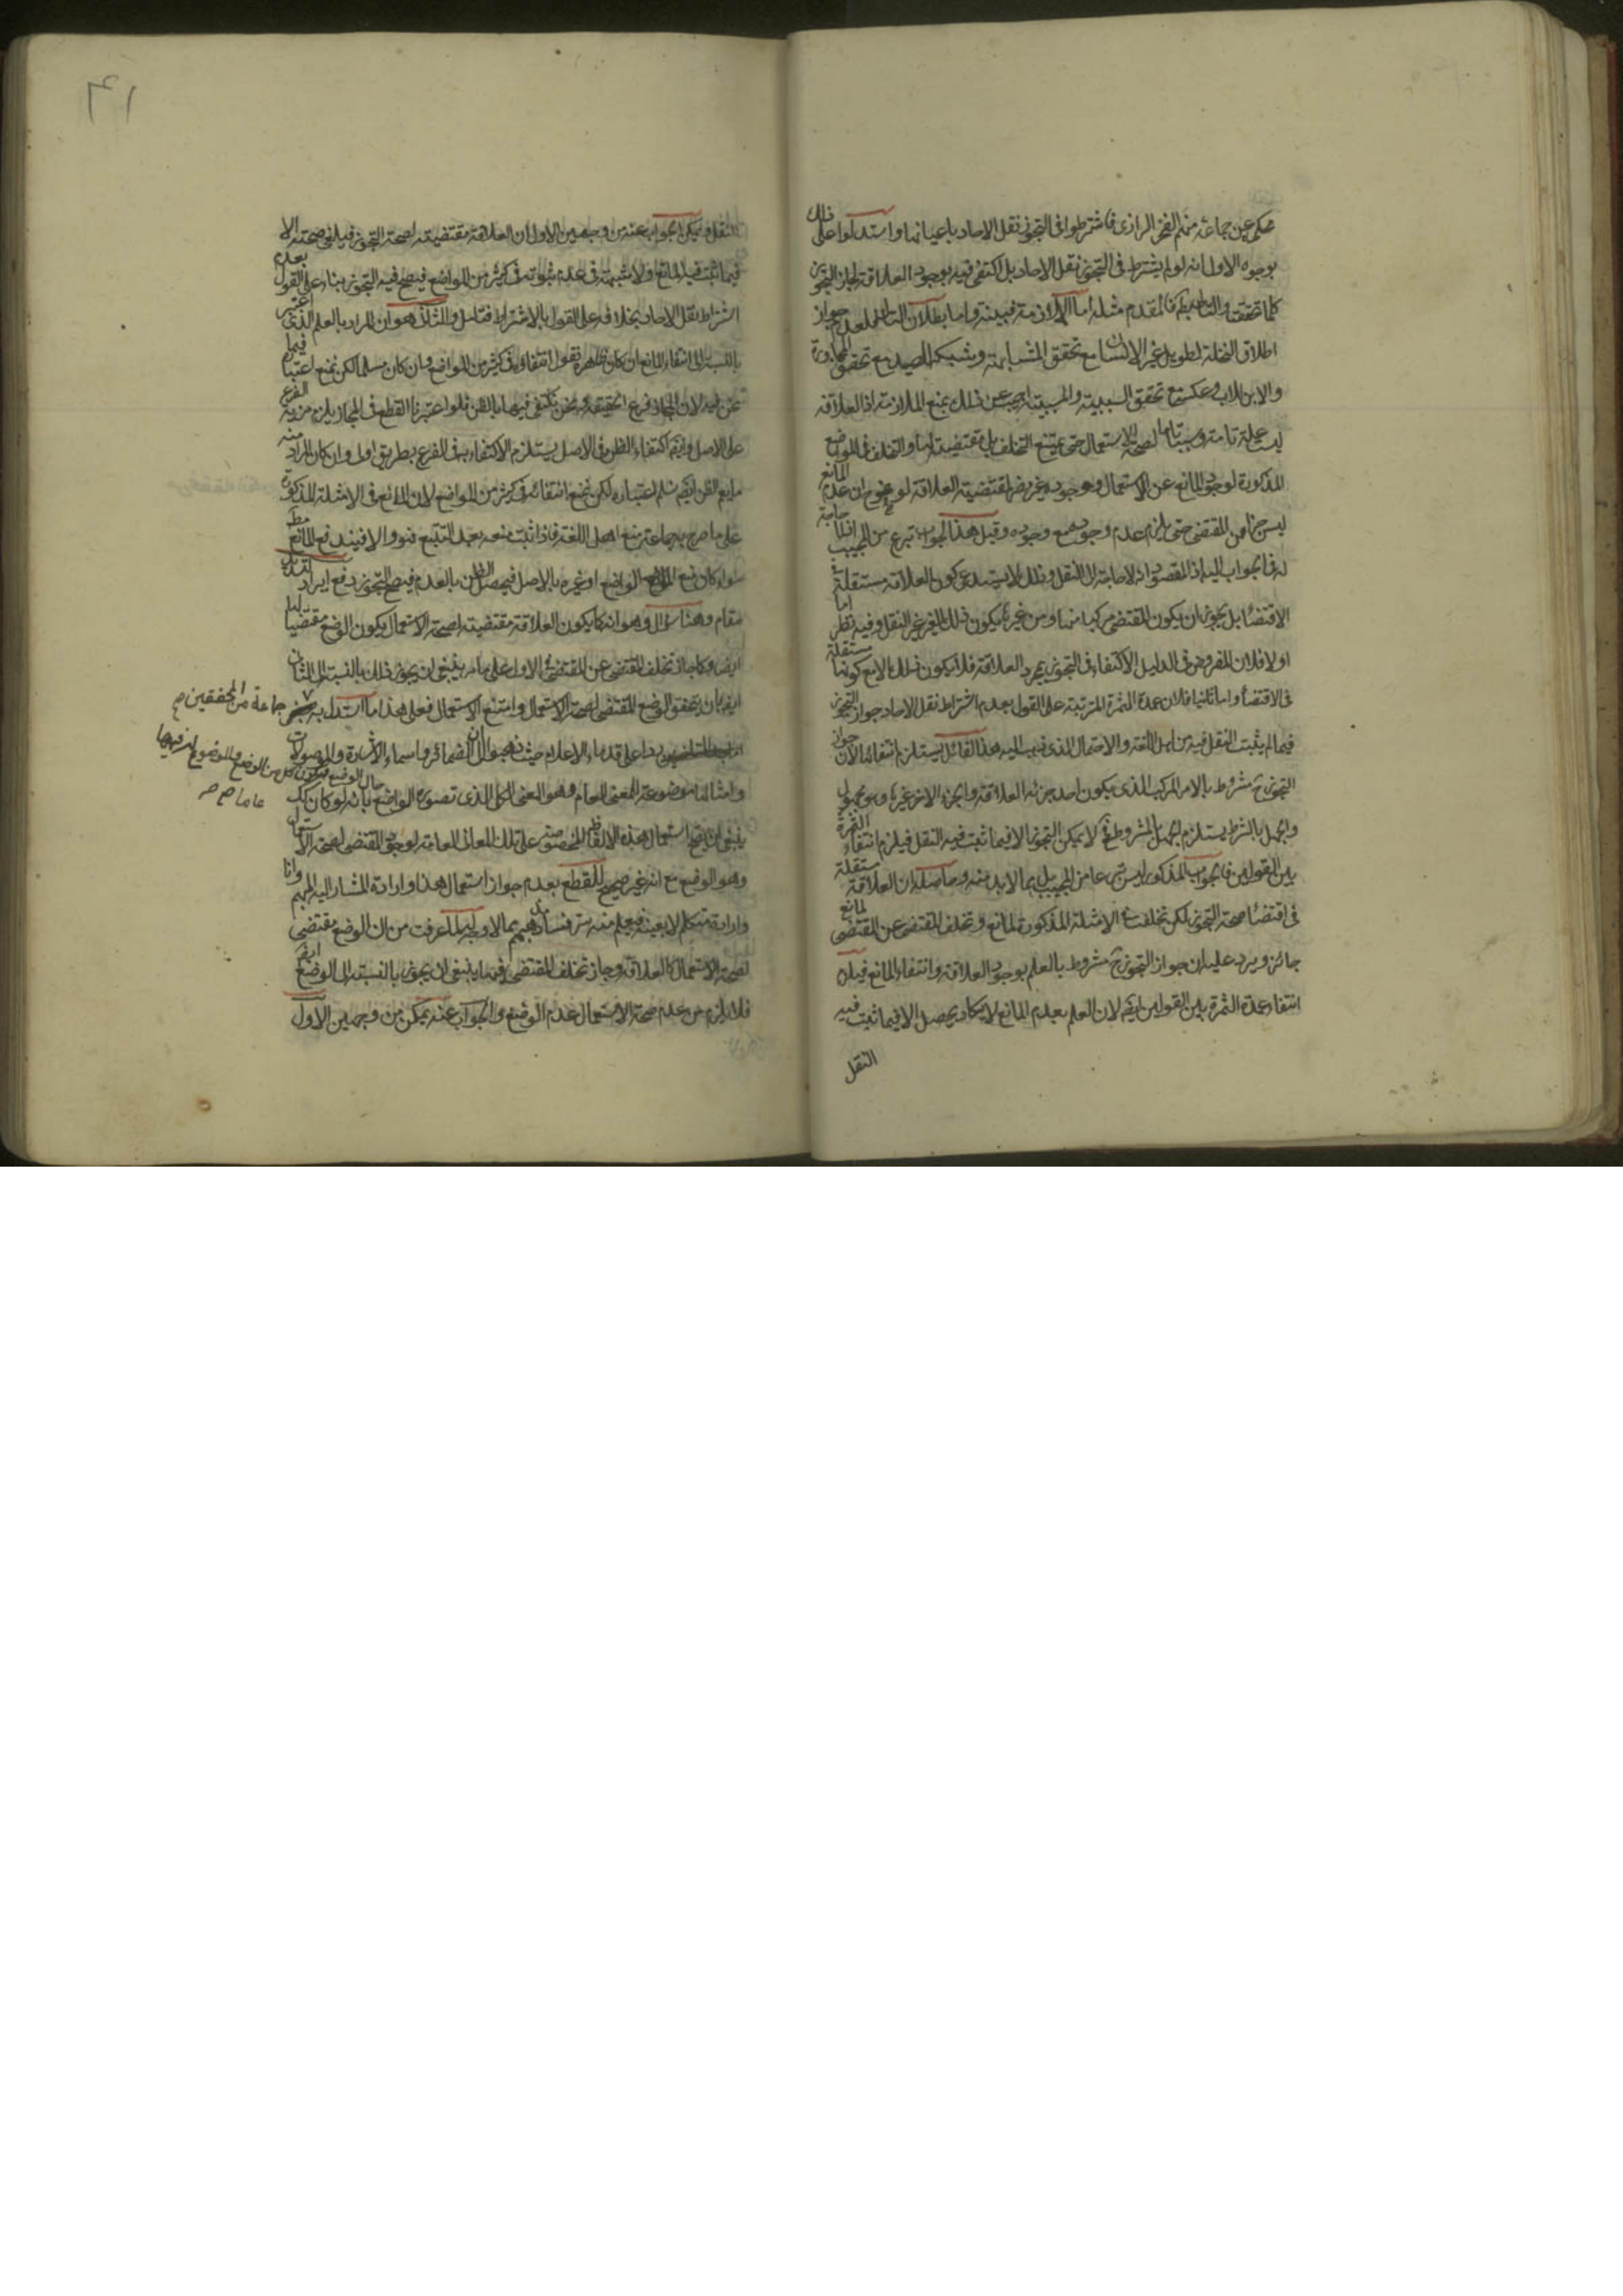 حكى عن جماعة منهم الفخر الرازى فاشترطوا فى التجوز نقل الاحاد باعيانها واستدلوا على ذلك
بوجوه الاول انه لو لم يشترط فى التجوز نقل الاحاد بل اكتفى فيه بوجود العلاقة لجاز التجوز
كلما تحققت والتالى بط فالمقدم مثله اما الملازمة فبينة واما بطلان التالى فلعدم جواز
اطلاق النخلة لطويل غير الانسان مع تحقق المشابهة وشبكة للصيد مع تحقق المجاورة
والابن للاب وعكسه مع تحقق السببية والمسببية اجيب عن ذلك بمنع الملازمة اذ العلاقة
ليست علة تامة وسببا تاما لصحة الاستعمال حتى يمتنع التخلف بل مقتضية لها والتخلف فى المواضع
المذكورة لوجود المانع عن الاستعمال ووجوده غير مضر لمقتضية العلاقة لوضوح ان عدم المانع
ليس جزء من المقتضى حتى يلزم عدم وجوده مع وجوده وقيل هذا الجواب تبرع من المجيب اذ لا حاجة
له فى الجواب اليه اذ المقصود انه لا حاجة الى النقل وذلك لا يستدعى كون العلاقة مستقلة فى
الاقتضاء بل يجوز ان يكون المقتضى مركبا منها ومن غيرها ويكون ذلك الغير غير النقل وفيه نظر اما
اولا فلان المفروض فى الدليل الاكتفاء فى التجوز بمجرد العلاقة فلا يكون ذلك الا مع كونها مستقلة
فى الاقتضاء واما ثانيا فلان عمدة الثمرة المترتبة على القول بعدم اشتراط نقل الاحاد جواز التجوز
فيما لم يثبت النقل فيه من اهل اللغة والاحتمال الذى ذهب اليه هذا القائل يستلزم انتفائها لان جواز
التجوز ح مشروط بالامر المركب الذى يكون احد جزئه العلاقة والجزء الاخر غيرها وهو مجهول
والجهل بالشرط يستلزم الجهل بالمشروط فح لا يمكن التجوز الا فيما ثبت فيه النقل فيلزم انتفاء الثمرة
بين القولين فالجواب المذكور ليس تبرعا من المجيب بل مما لا بد منه وحاصله ان العلاقة مستقلة
فى اقتضاء صحة التجوز لكن تخلفت فى الامثلة المذكورة لمانع وتخلف المقتضى عن المقتضى لمانع
جائز ويرد عليه ان جواز التجوز ح مشروط بالعلم بوجود العلاقة وانتفاء المانع فيلزم
انتفاء عمدة الثمرة بين القولين ايضا لان العلم بعدم المانع لا يكاد يحصل الا فيما ثبت فيه
النقل
النقل ويمكن الجواب عنه من وجهين الاول ان العلاقة مقتضية لصحة التجوز فيلغى صحته الا
فيما ثبت فيه المانع ولا شبهة فى عدم ثبوته فى كثير من المواضع فيصح فيه التجوز بناء على القول بعدم
اشتراط نقل الاحاد بخلافه على القول بالاشتراط فتامل والثانى هو ان المراد بالعلم الذى اعتبر
بالنسبة الى انتفاء المانع ان كان نقول انتفاؤه فى كثير من المواضع وان كان مسلما لكن نمنع اعتباره فيما
نحن فيه لان المجاز فرع الحقيقة ونحن نكتفى فيها بالظن فلو اعتبرنا القطع فى المجاز يلزم مزية الفرع
على الاصل وايضا اكتفاء الظن فى الاصل يستلزم الاكتفاء به فى الفرع بطريق اولى وان كان المراد منه
ما يعم الظن ايضا نسلم اعتباره لكن نمنع انتفائه فى كثير من المواضع لان المانع فى الامثلة المذكورة
على ما صرح به جماعة منع اهل اللغة فاذا ثبت منعه بعد التتبع فهو والا فيندفع المانع مط
سواء كان منع الواضع او غيره بالاصل فيحصل الظن بالعدم فيصح التجوز
مقام وهنا سؤال وهو انه كما يكون العلاقة مقتضية لصحة الاستعمال يكون الوضع مقتضيا لها
ايضا وكما جاز تخلف المقتضى عن المقتضى فى الاول على ما مر ينبغى ان يجوز ذلك بالنسبة الى الثانى
ايضا بان يتحقق الوضع المقتضى لصحة الاستعمال وامتنع الاستعمال فعلى هذا ما استدل به
ردا على قدماء الاعلام حيث ذهبوا الى ان الضمائر واسماء الاشارة والموصولات
وامثالها موضوعة للمعنى العام وهو المعنى الكلى الذى تصوره الواضع بانه لو كان كك
ينبغى ان يصح استعمال هذه الالفاظ المخصوصة على تلك المعانى العامة لوجود المقتضى لصحة الاستعمال
وهو الوضع مع انه غير صحيح للقطع بعدم جواز استعمال هذا وارادة المشار اليه المبهم وانا
وارادة متكلم لا بعينه فيعلم منه فساد مذهبهم مما لا وجه له لما عرفت من ان الوضع مقتضى
لصحة الاستعمال كالعلاقة وجاز تخلف المقتضى فيها ينبغى ان يجوز بالنسبة الى الوضع ايضا
فلا يلزم من عدم صحة الاستعمال عدم الوضع والجواب عنه يمكن من وجهين الاول
جماعة من المحققين صح
حال الوضع فيكون كل من الوضع والموضوع له فيها
عاما صح